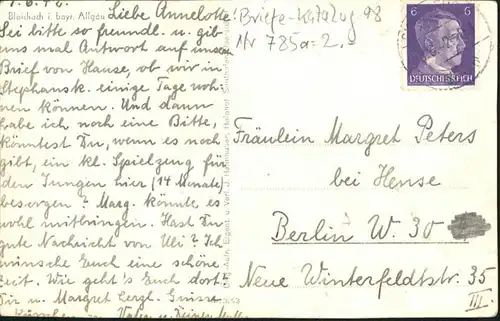 Blaichach i. bayr. Allgäu
Liebe Annelotte!
Sei bitte so freundl. u. gib
uns mal Antwort auf unsern
Brief von Hause, ob wir in
Stephansk. einige Tage woh-
nen können. Und dann
habe ich noch eine Bitte,
könntest Du, wenn es noch
gibt, ein kl. Spielzeug für
den Jungen hier (14 Monate)
besorgen? Marg. könnte es
wohl mitbringen. Hast Du
gute Nachricht von Uli? Ich
wünsche Euch eine schöne
Zeit. Wie geht's Euch dort?
Dir u. Margret herzl. Grüsse
Briefe-Katalog 98
Nr 785a = 2.-
6 6
DEUTSCHES REICH
Fräulein Margret Peters
bei Hense
Berlin W. 30
Neue Winterfeldtstr. 35
III